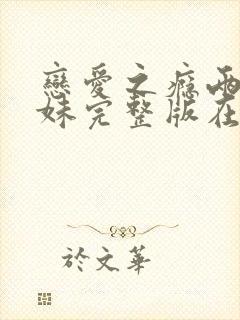 戀愛之癮兩
妹完整版在
於文華